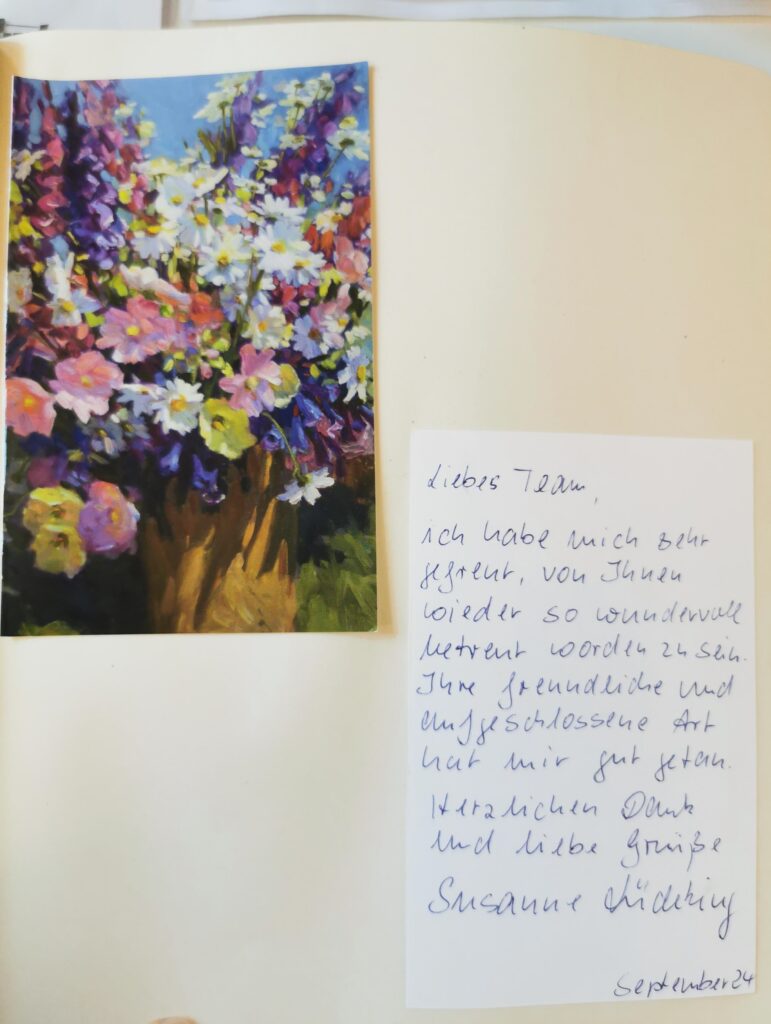 Liebes Team,
ich habe mich sehr
gefreut, von Ihnen
wieder so wundervoll
betreut worden zu sein.
Ihre freundliche und
aufgeschlossene Art
hat mir gut getan.
Herzlichen Dank
und liebe Grüße
Susanne
September 24